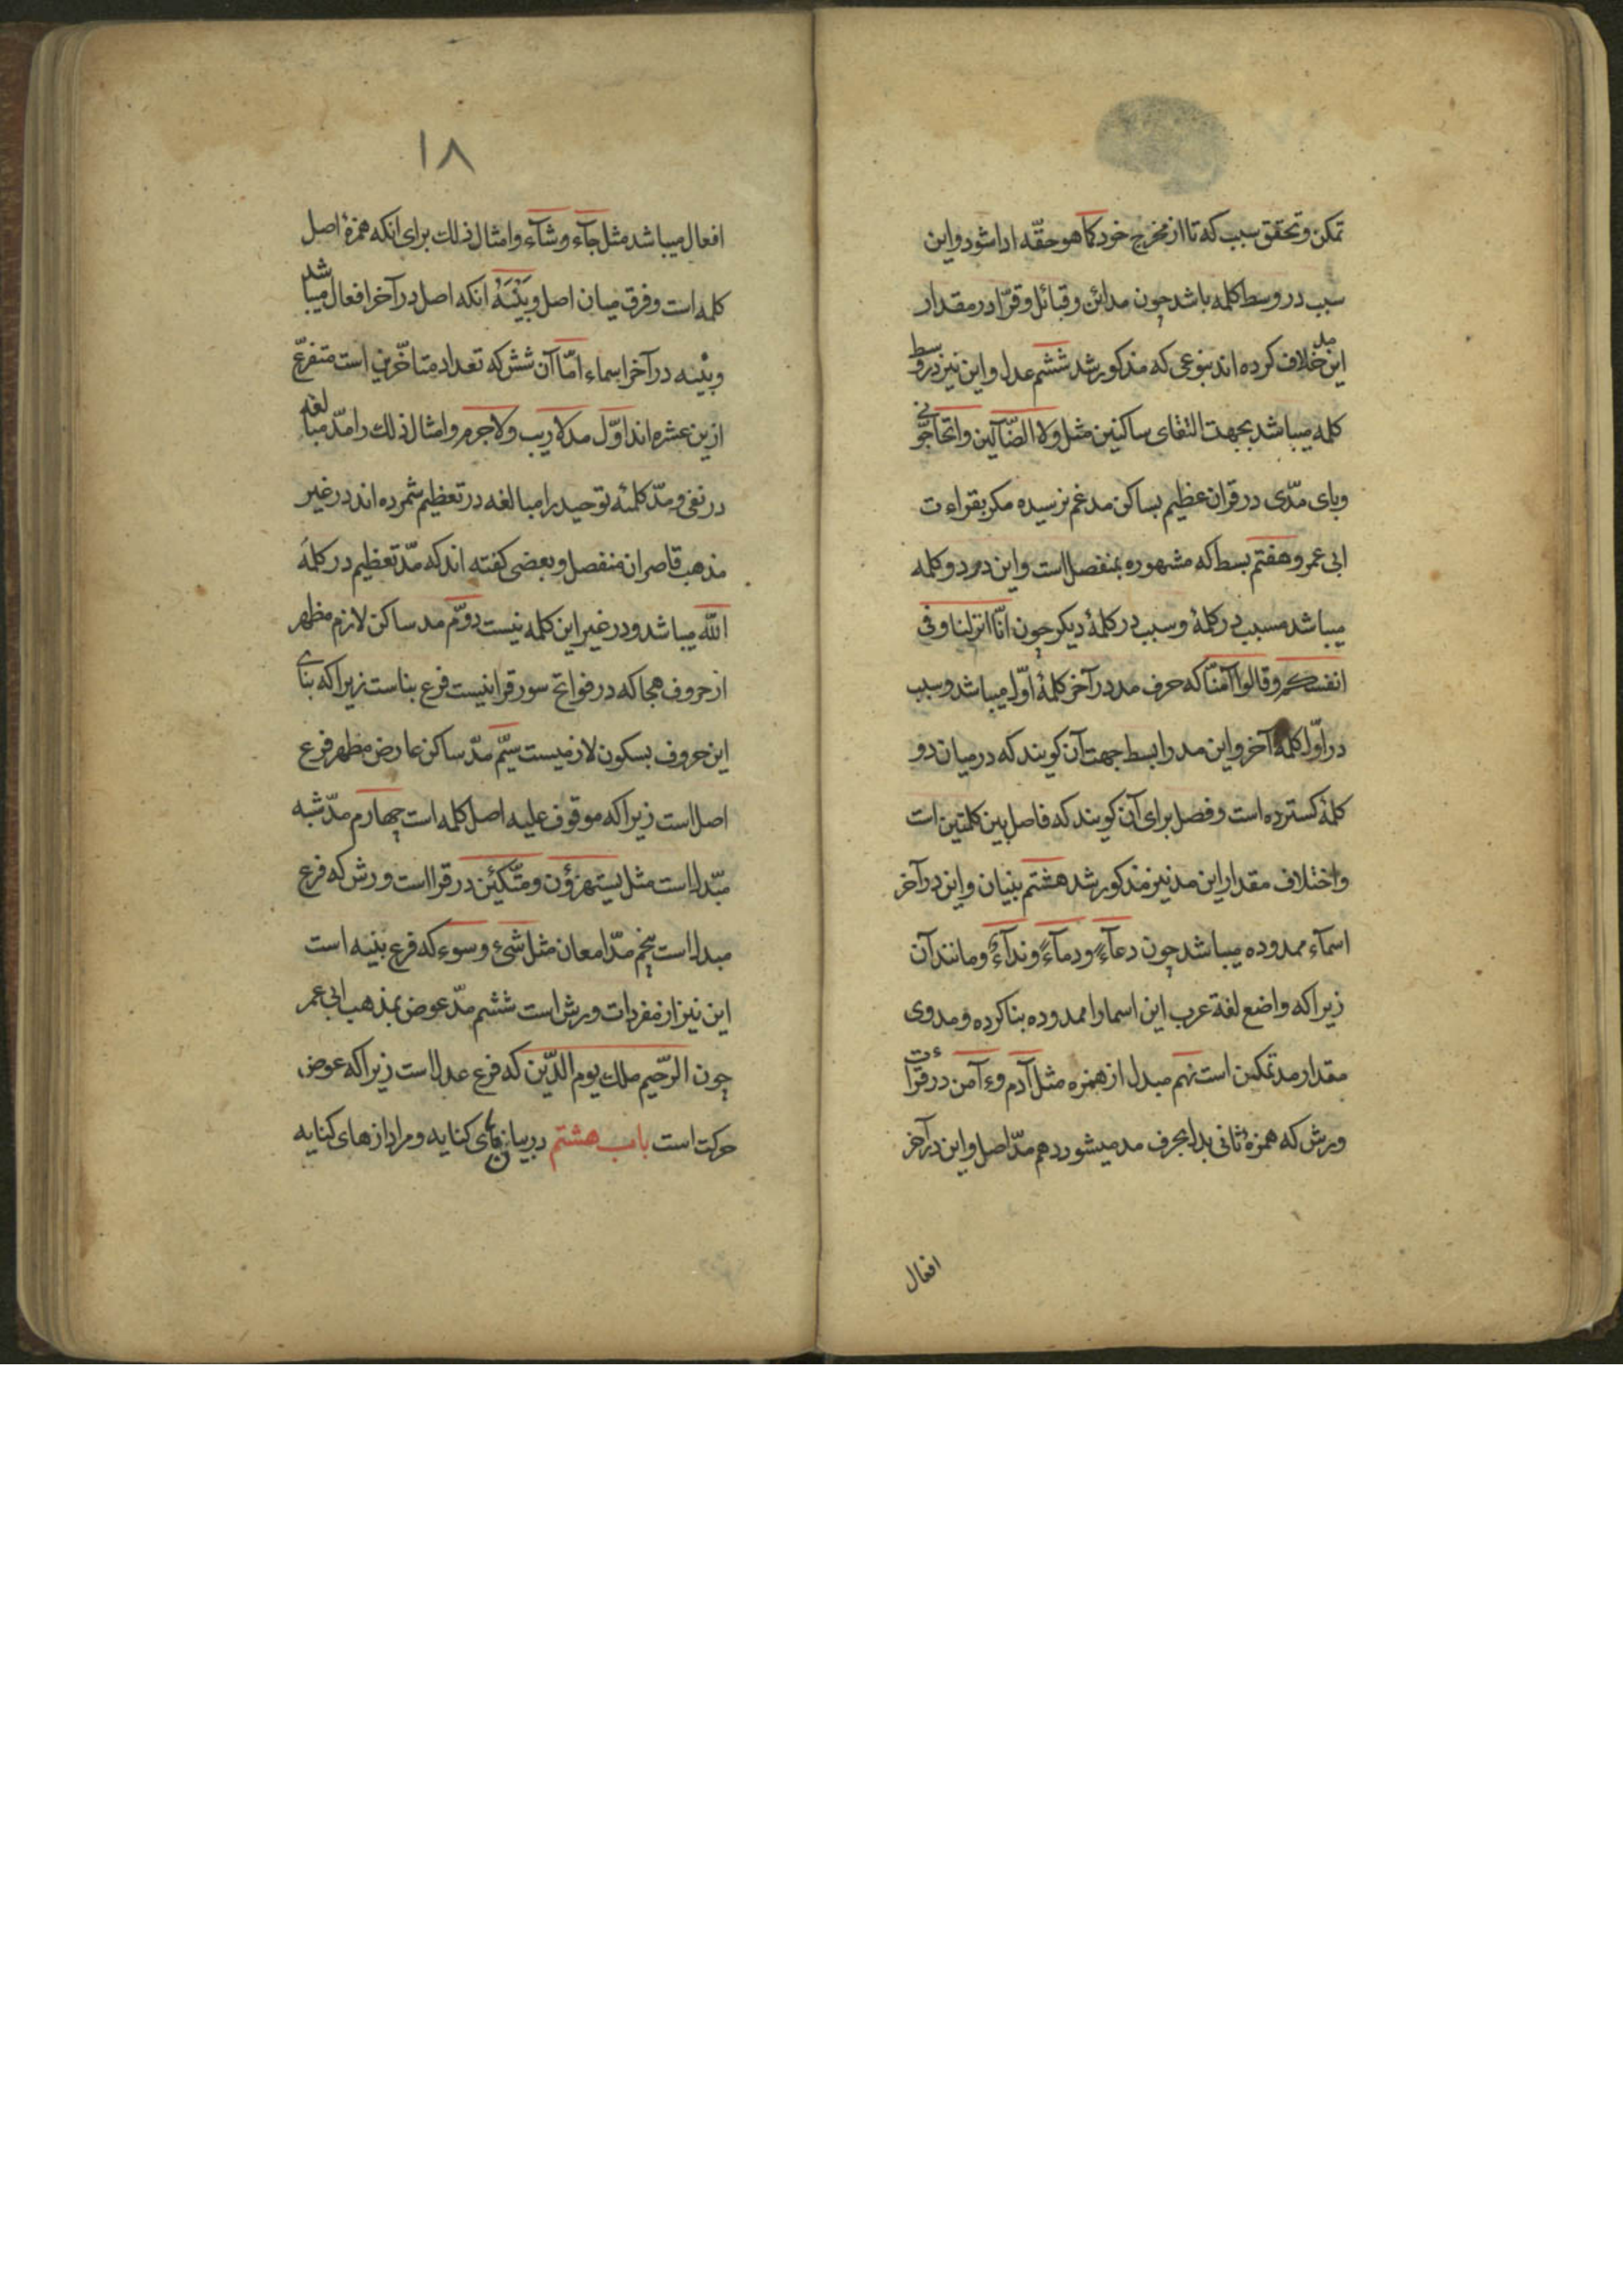 تمکن و تحقق سبب که تا از مخرج خود کما هو حقّه ادا شود و این
سبب در وسط کلمه باشد چون مدائن و قبائل و قرّا در مقدار
این مد خلاف کرده اند بنوعی که مذکور شد ششم عدل و این نیز در وسط
کلمه میباشد بجهت التقای ساکنین مثل ولا الضّآلین و اتحاجّونی
و یای مدّی در قران عظیم بساکن مدغم نرسیده مکر بقراءت
ابی عمرو هفتم بسط که مشهوره بمنفصل است و این در دو کلمه
میباشد مسبب در کلمهٔ و سبب در کلمهٔ دیکر چون انّا انزلنا و فی
انفسکم و قالوا آمنّا که حرف مد در آخر کلمهٔ اوّل میباشد و سبب
در اوّل کلمهٔ آخر و این مد را بسط جهت آن کویند که در میان دو
کلمهٔ کسترده است و فصل برای آن کویند که فاصل بین کلمتین ات
و اختلاف مقدار این مد نیز مذکور شد هشتم بنیان و این در آخر
اسمآء ممدوده میباشد چون دعآءٍ و دمآءً و ندآءً و مانند آن
زیرا که واضع لغة عرب این اسما را ممدوده بنا کرده و مدوی
مقدار مد تمکین است نهم مبدل از همزه مثل آدم وءآمن در قراءت
ورش که همزهٔ ثانی بدل بحرف مد میشود دهم مدّ اصل و این در آخر
افعال
١٨
افعال میباشد مثل جآء و شآء و امثال ذلك برای انکه همزهٔ اصل
کلمه است و فرق میان اصل و بنیه انکه اصل در آخر افعال میباشد
و بنیه در آخر اسماء امّا آن شش که تعداد متاخّرین است متفرّع
ازین عشره اند اوّل مد لا ریب و لا جرم و امثال ذلك را مدّ مبالغه
در نفی و مدّ کلمهٔ توحید را مبالغه در تعظیم شمرده اند در غیر
مذهب قاصران منفصل و بعضی کفته اند که مدّ تعظیم در کلمهٔ
اللّه میباشد و در غیر این کلمه نیست دوّم مد ساکن لازم مظهر
از حروف هجا که در فواتح سور قرانیست فرع بناست زیرا که بنای
این حروف بسکون لازمیست سیّم مدّ ساکن عارض مظهر فرع
اصل است زیرا که موقوف علیه اصل کلمه است چهارم مدّ شبه
مبّدل است مثل یستهزؤن و متّکئین در قراات ورش که فرع
مبدل است پنجم مدّ امعان مثل شیء و سوء که فرع بنیه است
این نیز از مفردات ورش است ششم مدّ عوض بمذهب ابی عمر
چون الرّحیم ملك یوم الدّین که فرع عدل است زیرا که عوض
حرکت است باب هشتم در بیان های کنایه و مراد از های کنایه